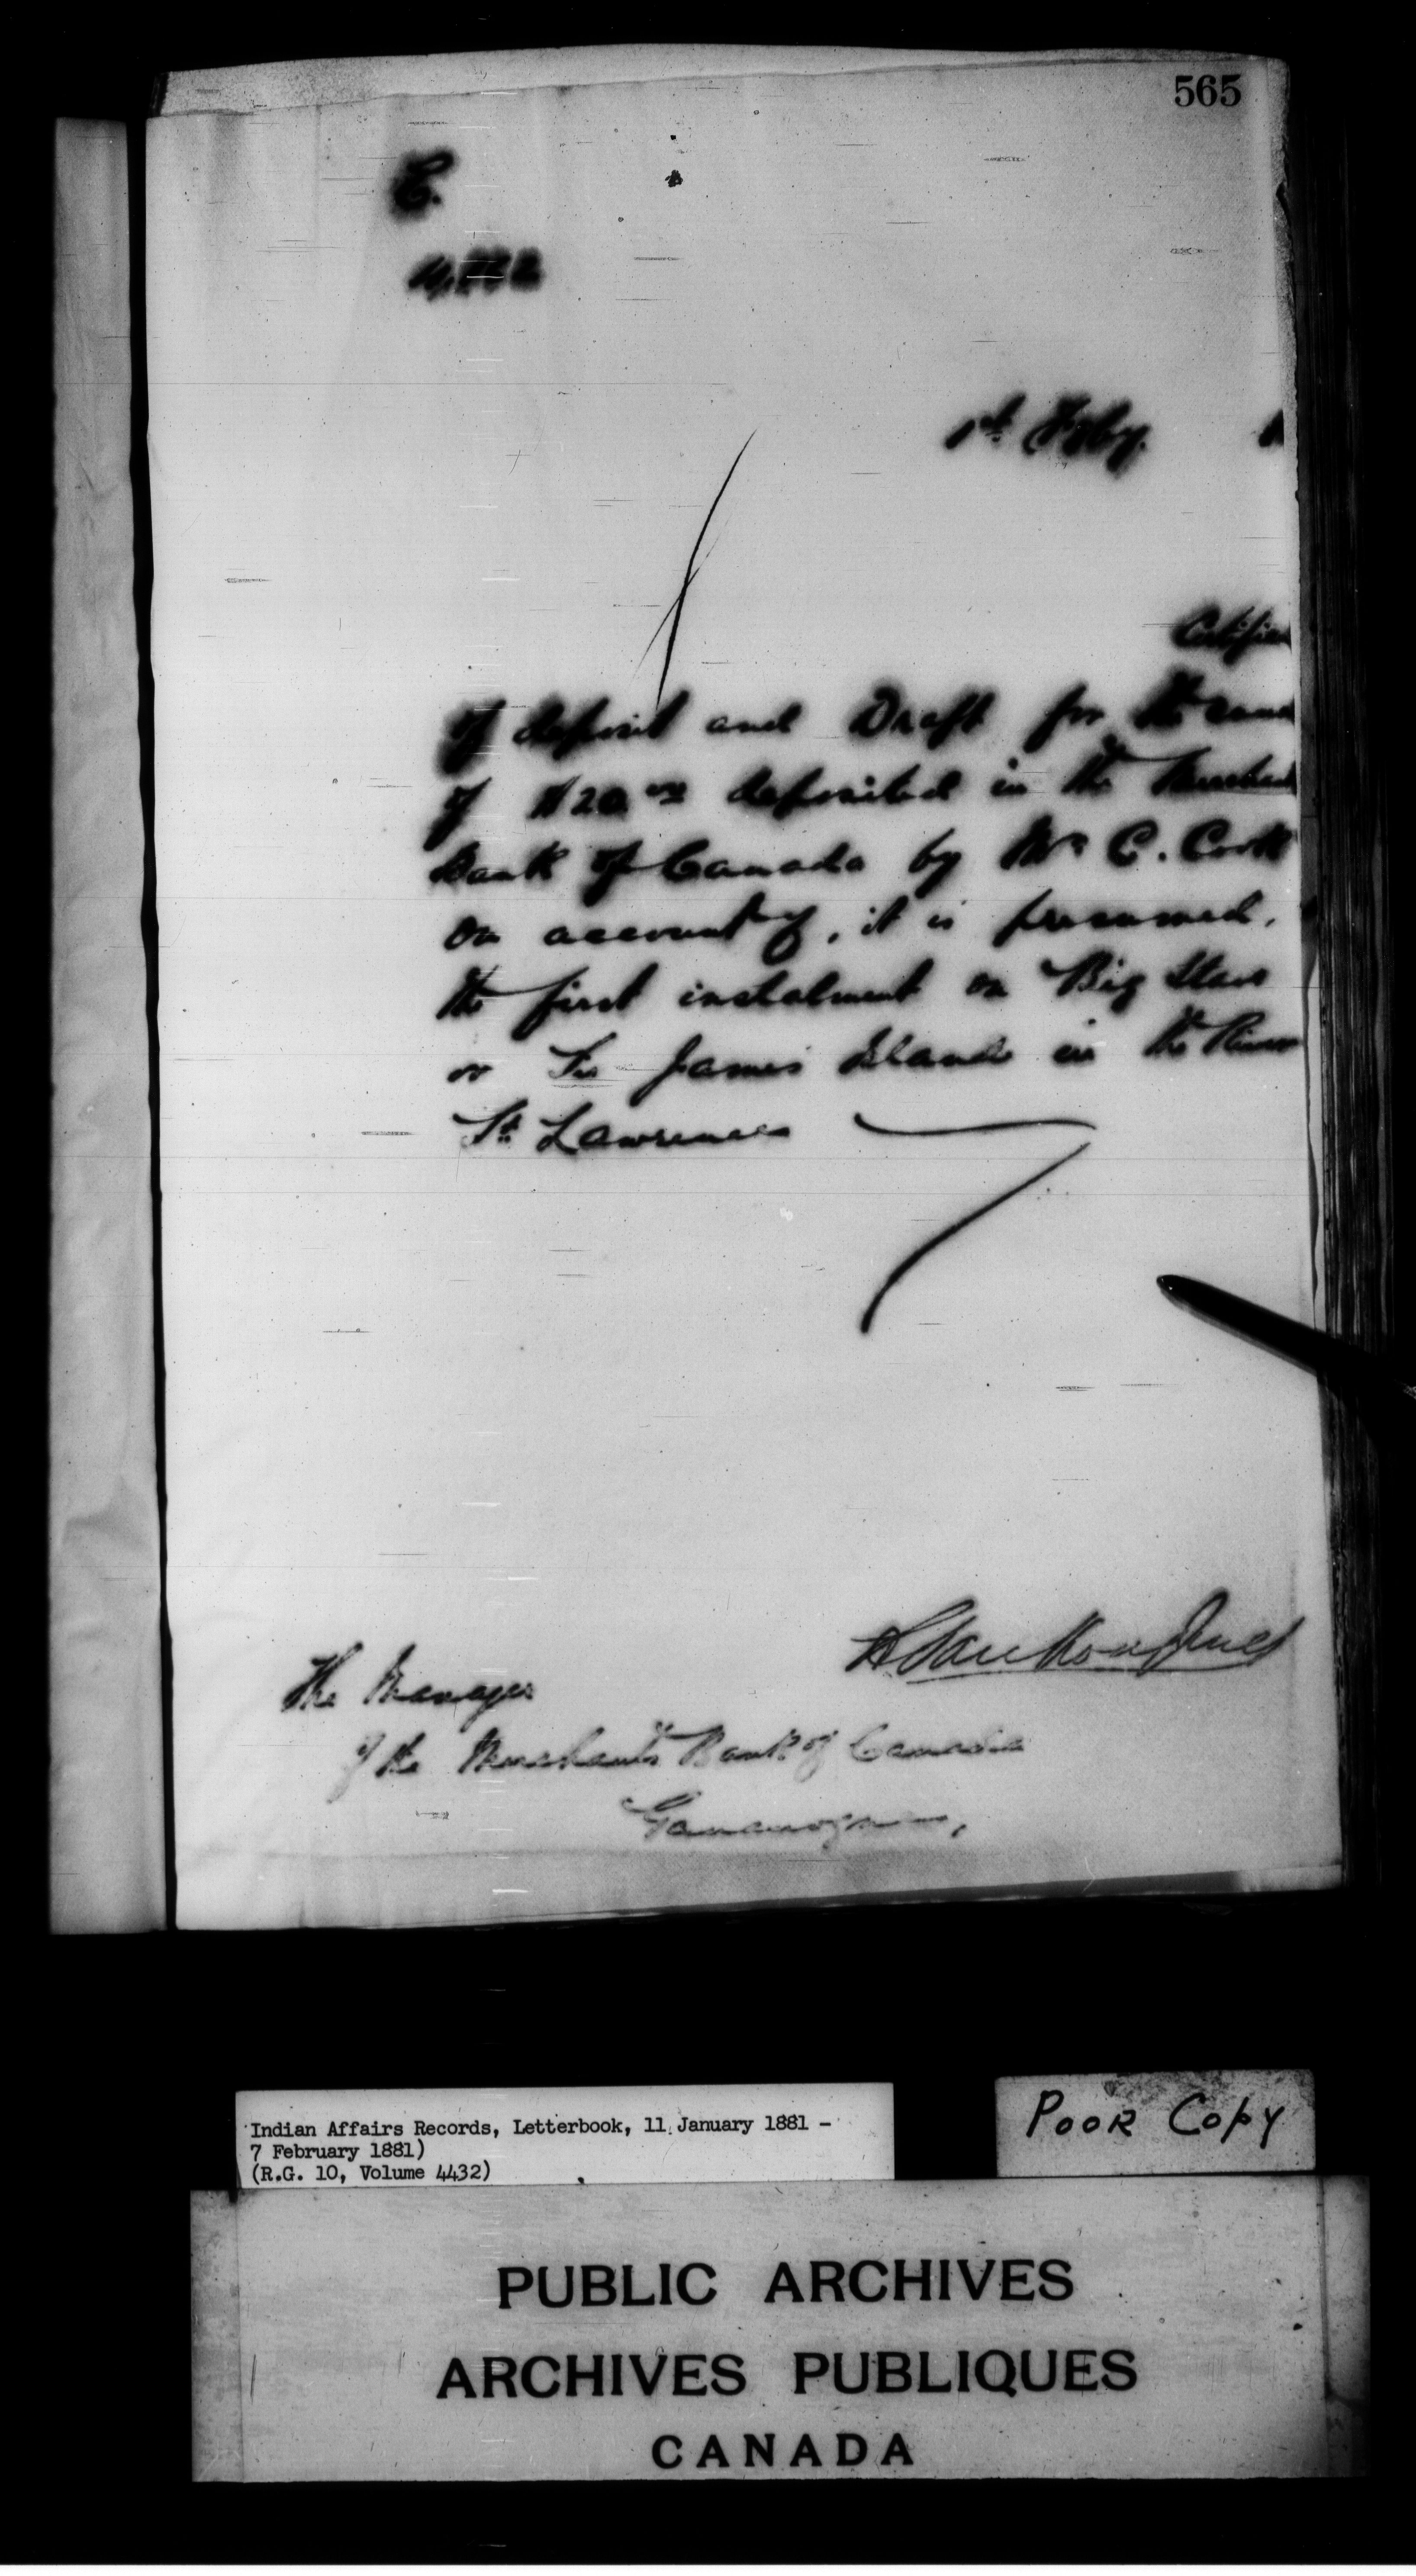 565
C.
1st Feby.
of deposit and Draft for the sum
of $20.00 deposited in the
Bank of Canada by Mr C. Cook
on account of, it is presumed,
the first instalment on Big Stave
or Sir James Island in the River
St. Lawrence
The Manager
of the Merchants Bank of Canada
Gananoque,
Indian Affairs Records, Letterbook, 11 January 1881 -
7 February 1881)
(R.G. 10, Volume 4432)
POOR COPY
PUBLIC ARCHIVES
ARCHIVES PUBLIQUES
CANADA